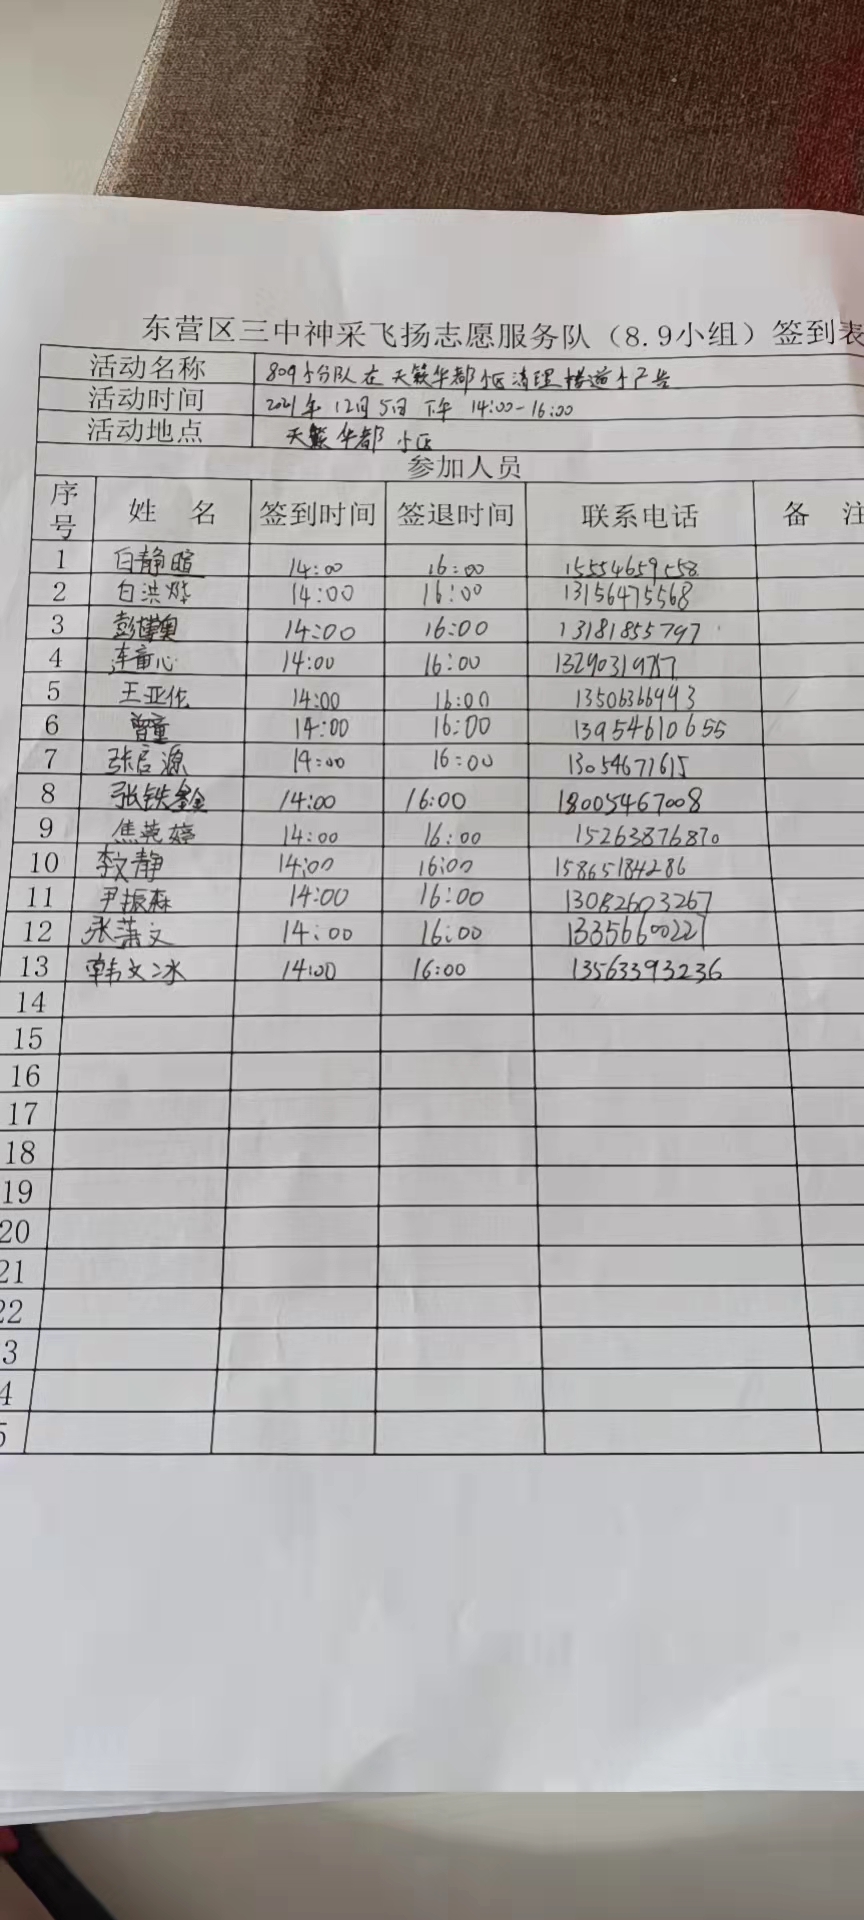 东营区三中神采飞扬志愿服务队（8.9小组）签到表
活动名称 809小分队在天籁华都小区清理楼道小广告
活动时间 2021年12月5日下午 14:00-16:00
活动地点 天籁华都小区
参加人员
序号 姓 名 签到时间 签退时间 联系电话 备 注
1 白静暄 14:00 16:00 15554659558
2 白洪烨 14:00 16:00 13156475568
3 14:00 16:00 13181855797
4 连童心 14:00 16:00
5 王亚伦 14:00 16:00 13506366993
6 曾童 14:00 16:00 13954610655
7 张启源 14:00 16:00 13054671615
8 张铁鑫 14:00 16:00 18005467008
9 焦英婷 14:00 16:00 15263876870
10 李文静 14:00 16:00 15865184286
11 尹振森 14:00 16:00 13082603267
12 张萧文 14:00 16:00 13356600221
13 韩文冰 14:00 16:00 13563393236
14
15
16
17
18
19
20
21
22
3
4
5